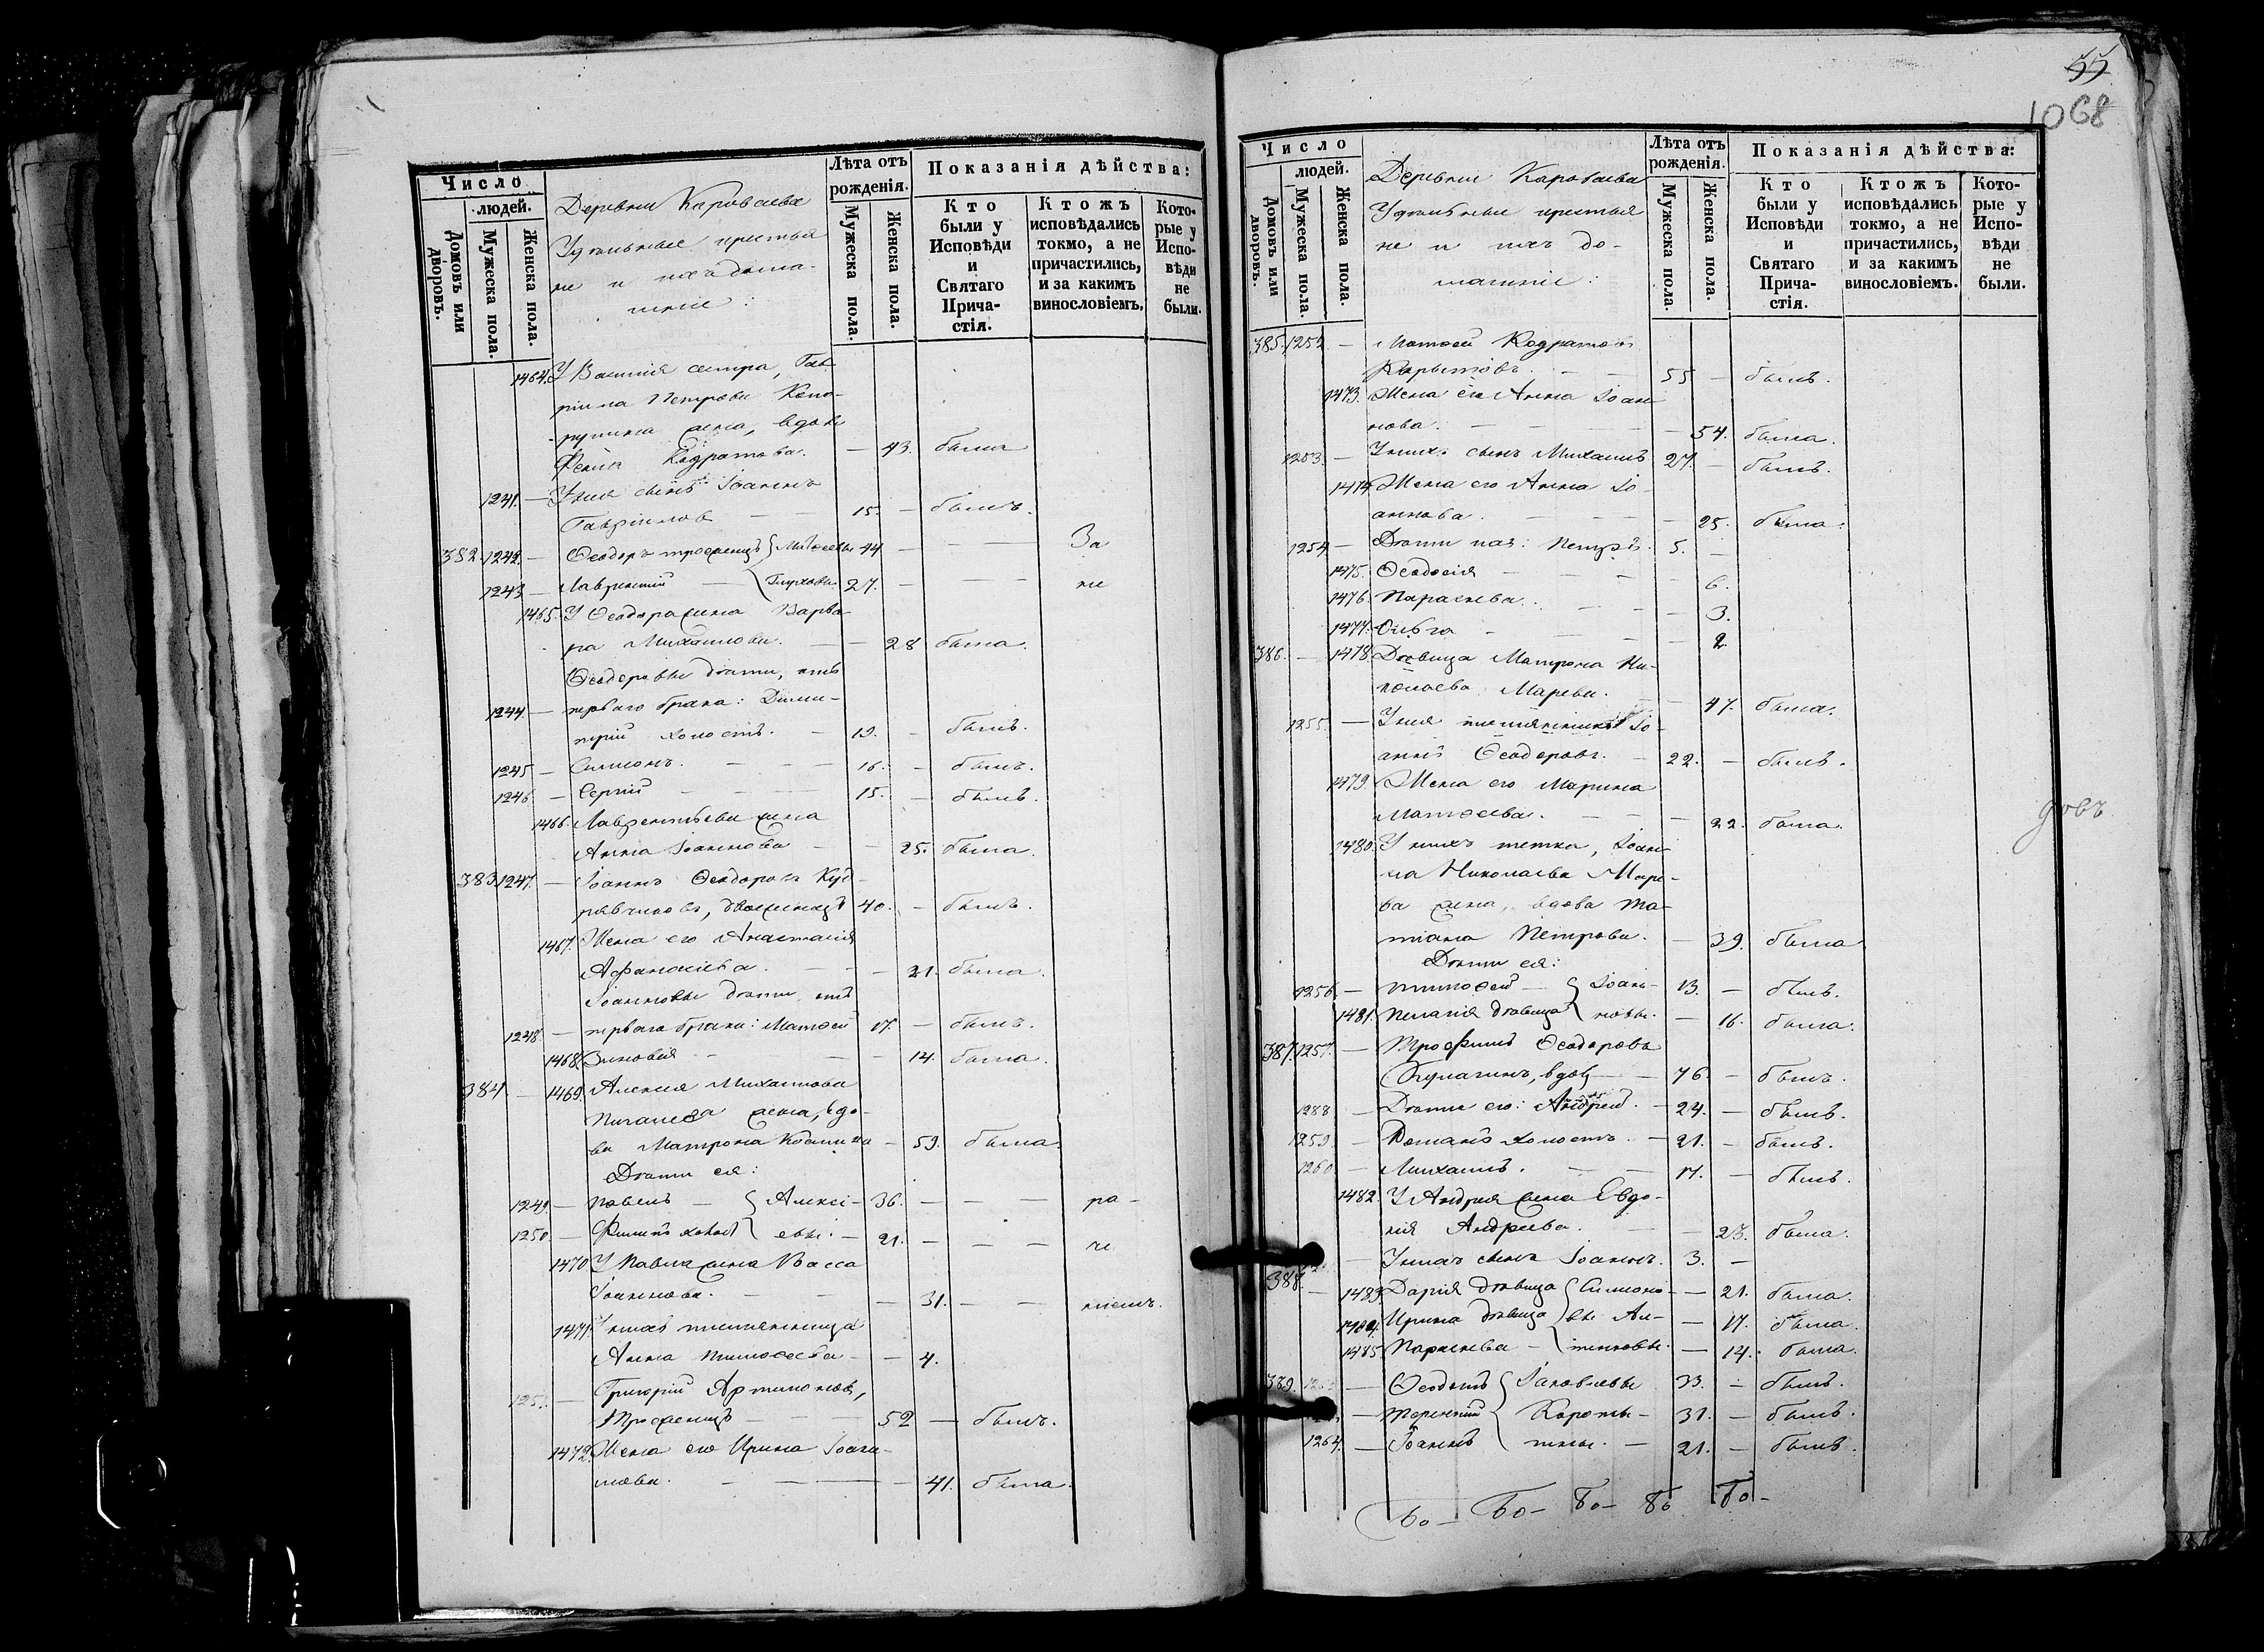 Число
людей.
Домовъ или дворовъ.
Мужеска пола.
Женска пола.
Деревни Короваева
Удѣльные крестья
не и ихъ дома-
шніе:
Лѣта отъ рожденія.
Мужеска пола.
Женска пола.
Показанія дѣйства:
Кто были у Исповѣди и Святаго Прича-стія.
Ктожъ исповѣдались токмо, а не причастились, и за какимъ винословіемъ.
Кото-рые у Испо-вѣди не были.
1464. У сестра, Гав-
ріила Петрова
жена, вдова
Кодратова. — 43. была
1241. — У нея сынъ Іоаннъ
Гавріиловъ — — 15. — былъ.
382. 1242. — Ѳеодоръ троеженецъ Матѳеевы 44 — — — За
1243 — Лаврентій — 27. — — — не
1465. У Ѳеодора жена Варва-
ра Михаилова. — — 28 была.
Ѳеодоровы дѣти, отъ
1244 — перваго брака: Дими-
трій холостъ. — 19. — былъ.
1245 — Симеонъ. — — — 16. — былъ.
1246 — Сергій — — — 15. — былъ.
1466. Лаврентьева жена
Анна Іоаннова — — 25. была.
383. 1247. — Іоаннъ Ѳеодоровъ Куд-
двоженецъ 40. — былъ.
1467. Жена его Анастасія
Афанасіева. — — — 21. была.
Іоанновы дѣти отъ
1248 — перваго брака: Матѳей 17. — былъ.
1468. Зиновія — — — 14. была.
384. — 1469. Алексія Михаилова
жена, вдо-
ва Матрона Козмина — 59. была.
Дѣти ея:
1249 — Павелъ — Алексі- 36. — — — ра-
1250. — Филипъ холост евы. — 21. — — — че
1470 У Павла жена Васса
Іоаннова. — — — 31. — — ніемъ.
1471. У нихъ племянница
Анна Тимоѳеева — — 4.
125. — Григорій Артемоновъ,
Троеженецъ — — — 52 — былъ.
1472. Жена его Ирина Іоан-
нова. — — — 41. была.
55
1068
Число
людей.
Домовъ или дворовъ.
Мужеска пола.
Женска пола.
Деревни Короваева
Удѣльные крестья
не и ихъ до-
машніе:
Лѣта отъ рожденія.
Мужеска пола.
Женска пола.
Показанія дѣйства:
Кто были у Исповѣди и Святаго Прича-стія.
Ктожъ исповѣдались токмо, а не причастились, и за какимъ винословіемъ.
Кото-рые у Испо-вѣди не были.
385. 1252. — Матѳей Кодратовъ
Корытовъ. — — 55 — былъ.
1473. Жена его Анна Іоан-
нова. — — — — 54. была.
1253. — У нихъ сынъ Михаилъ 27. — былъ.
1474. Жена его Анна Іо-
аннова. — — — — 25. была.
1254 — Дѣти ихъ: Петръ. 5. —
1475. Ѳеодосія — — — — 6.
1476. Параскева. — — — 3.
1477. Ольга — — — — 2
386. — 1478. Дѣвица Матрона Ни-
колаева Марева. — — 47. была.
1255. — У нея племянникъ Іо-
аннъ Ѳеодоровъ. — 22. — былъ.
1479. Жена его Марина
Матѳеева. — — — 22. была.
1480. У нихъ тетка, Іоан-
на Николаева Маре-
ва жена, вдова Та-
тіана Петрова. — 39. была
Дѣти ея:
1256. — Тимоѳей — Іоан- 13. — былъ.
1481. Пелагія дѣвица новы. — 16. была.
387. 1257. — Трофимъ Ѳеодоровъ
Кулагинъ, вдов — 76. — былъ.
1288 — Дѣти его: Андрей. — 24. — былъ.
1259. — Романъ холостъ. — 21. — былъ.
1260 — Михаилъ. — — 17. — былъ.
1482. У Андрея жена Евдо-
кія Андреева. — — 23. была.
— У нихъ сынъ Іоаннъ. 3. —
388. — 1483. Дарія дѣвица Симеоно- — 21. была.
1484. Ирина дѣвица вы — 17. была.
1485. Параскева — — 14. была.
389. — Ѳеодотъ Іаковлевы 33. — былъ.
— Терентій — 31. — былъ.
1264. — Іоаннъ — 21. — былъ.
довъ
Бо — Бо — Бо — Бо Бо —